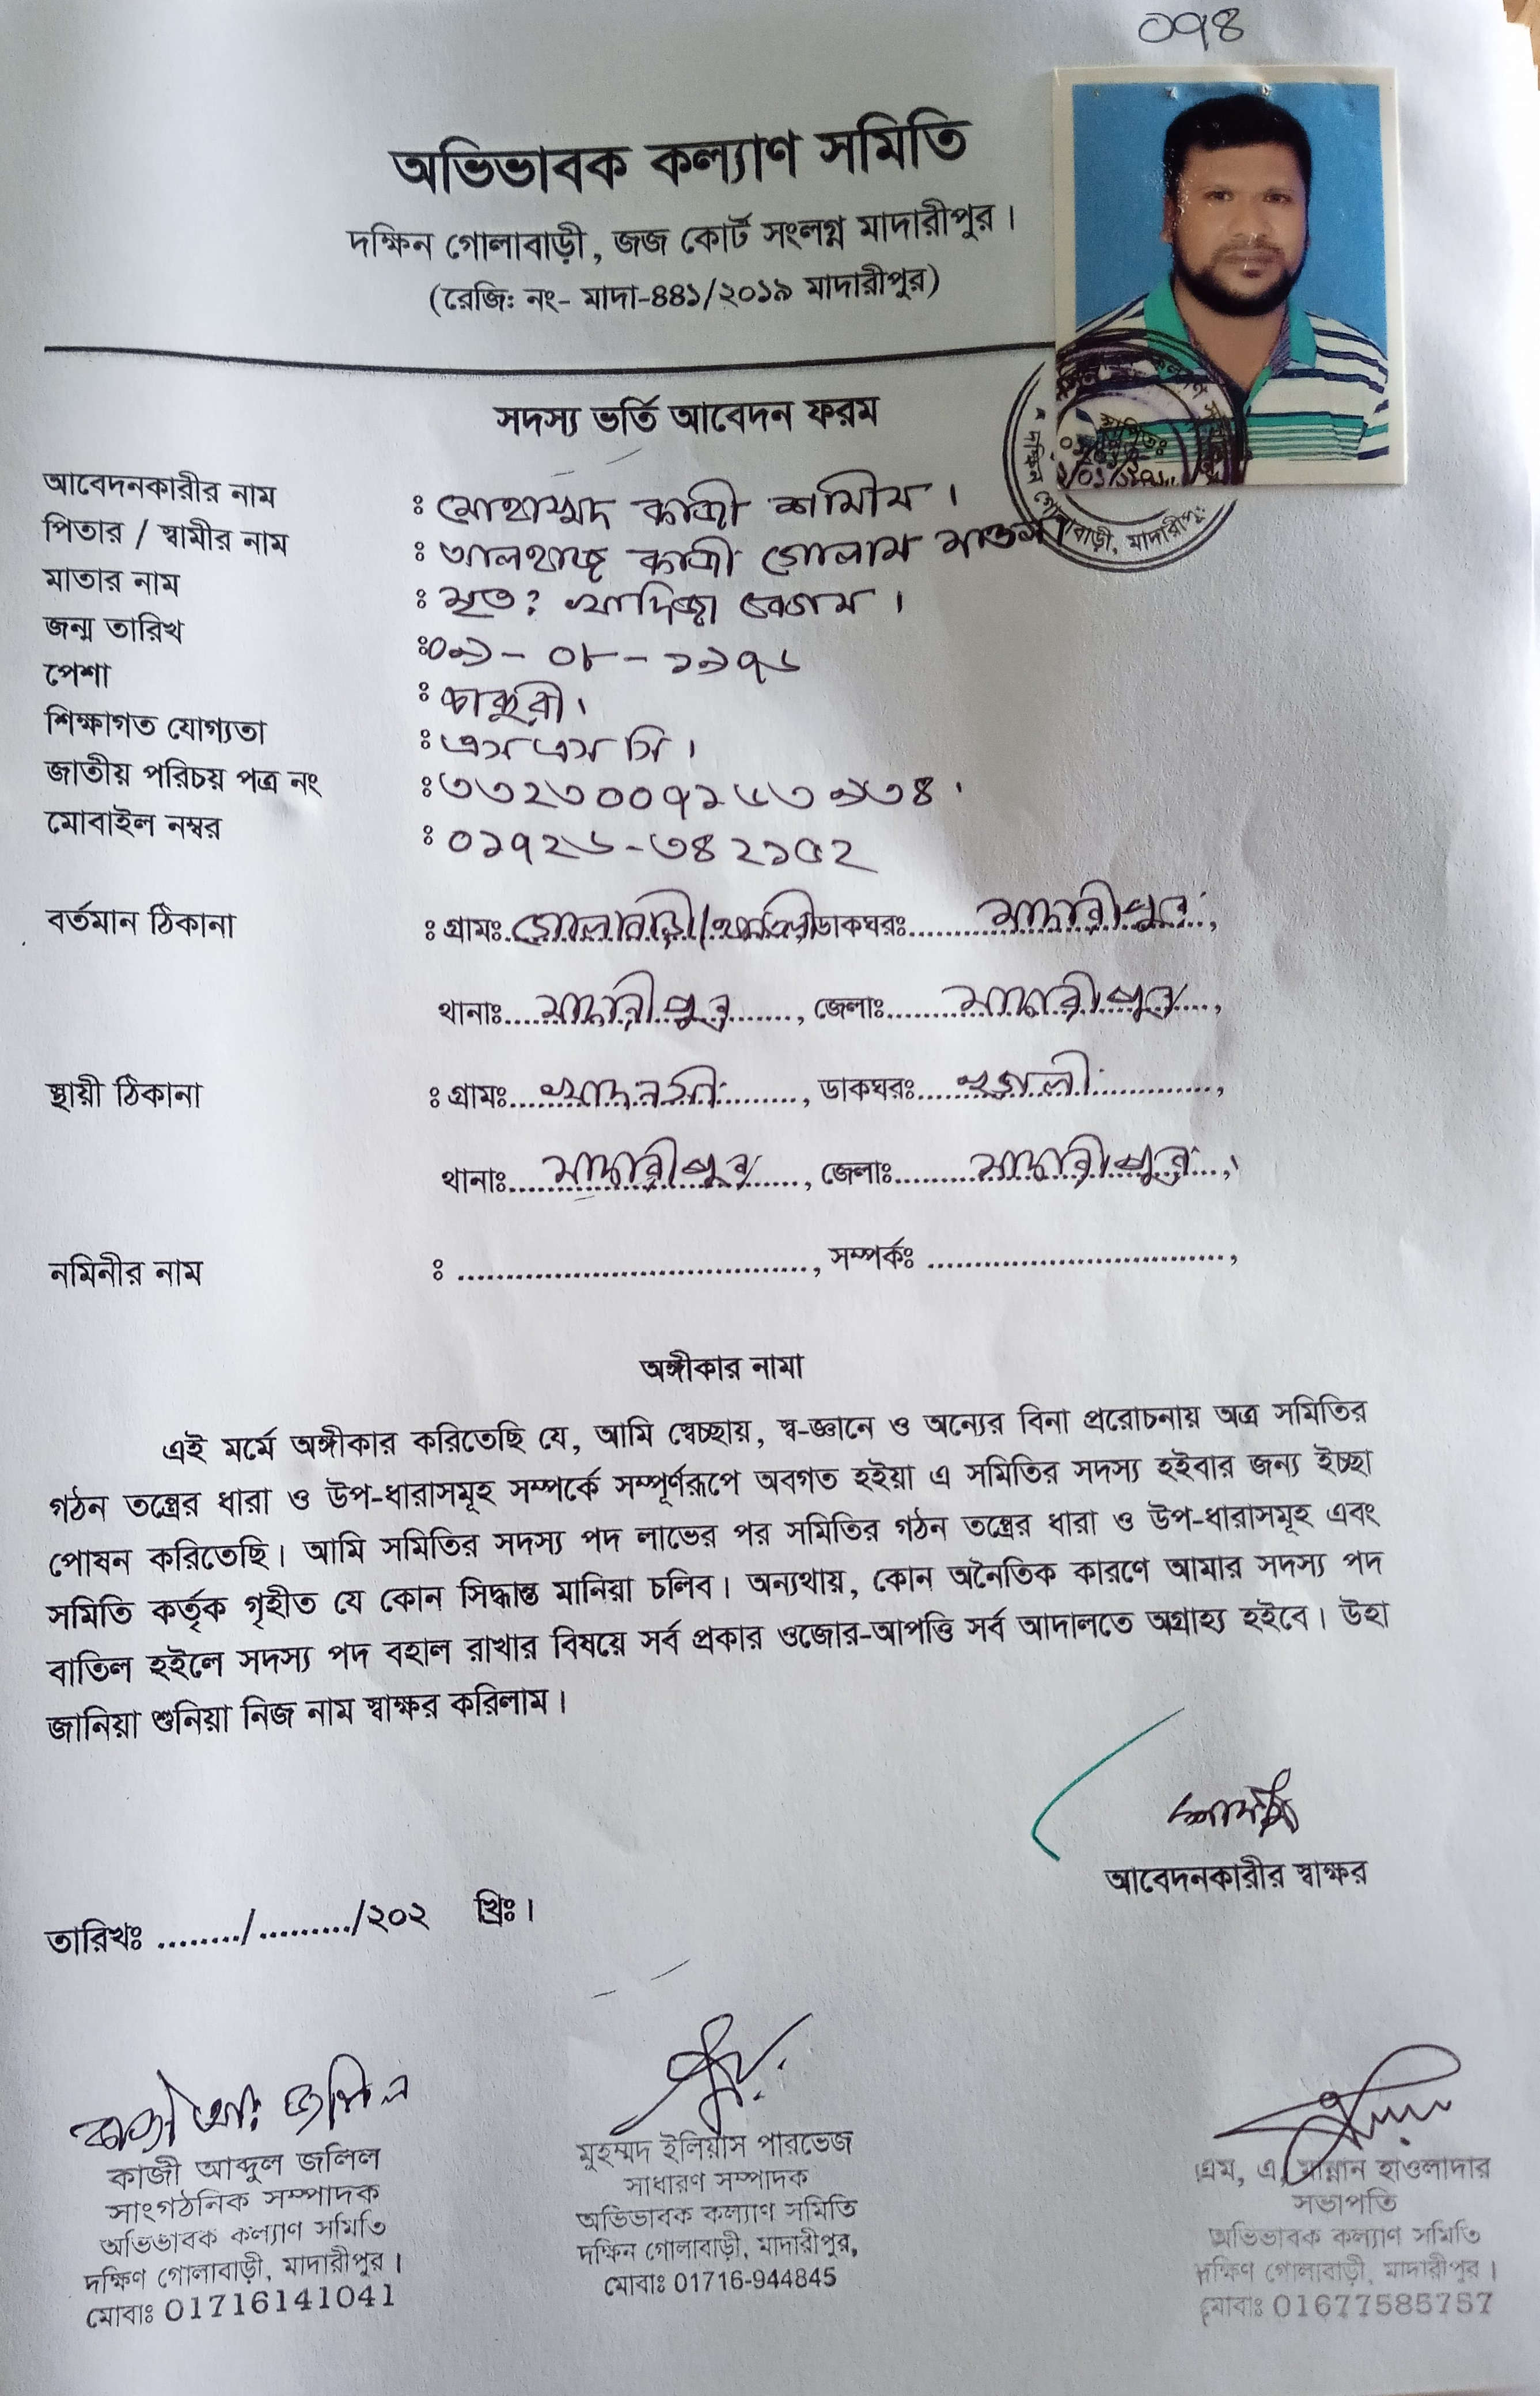 ০৭৪
অভিভাবক কল্যাণ সমিতি
দক্ষিন গোলাবাড়ী, জজ কোর্ট সংলগ্ন মাদারীপুর।
(রেজি: নং- মাদা-৪৪১/২০১৯ মাদারীপুর)
সদস্য ভর্তি আবেদন ফরম
আবেদনকারীর নাম : মোহাম্মদ কাজী শামীম।
পিতার / স্বামীর নাম : আলহাজ্ব কাজী গোলাম
মাতার নাম : মৃত: খাদিজা বেগম।
জন্ম তারিখ :০৯-০৮-১৯৭৬
পেশা : চাকুরী।
শিক্ষাগত যোগ্যতা : এস এস সি।
জাতীয় পরিচয় পত্র নং :৩৩২৩০০৭১৬৩৯৩৪
মোবাইল নম্বর : ০১৭২৬-৩৪২১৫২
বর্তমান ঠিকানা : গ্রামঃ গোলাবাড়ী ডাকঘরঃ মাদারীপুর,
থানাঃ মাদারীপুর, জেলাঃ মাদারীপুর,
স্থায়ী ঠিকানা : গ্রামঃ ডাকঘরঃ
থানাঃ মাদারীপুর, জেলাঃ মাদারীপুর,
নমিনীর নাম : ...................................., সম্পর্কঃ ................................,
অঙ্গীকার নামা
এই মর্মে অঙ্গীকার করিতেছি যে, আমি স্বেচ্ছায়, স্ব-জ্ঞানে ও অন্যের বিনা প্ররোচনায় অত্র সমিতির
গঠন তন্ত্রের ধারা ও উপ-ধারাসমূহ সম্পর্কে সম্পূর্ণরূপে অবগত হইয়া এ সমিতির সদস্য হইবার জন্য ইচ্ছা
পোষন করিতেছি। আমি সমিতির সদস্য পদ লাভের পর সমিতির গঠন তন্ত্রের ধারা ও উপ-ধারাসমূহ এবং
সমিতি কর্তৃক গৃহীত যে কোন সিদ্ধান্ত মানিয়া চলিব। অন্যথায়, কোন অনৈতিক কারণে আমার সদস্য পদ
বাতিল হইলে সদস্য পদ বহাল রাখার বিষয়ে সর্ব প্রকার ওজোর-আপত্তি সর্ব আদালতে অগ্রাহ্য হইবে। উহা
জানিয়া শুনিয়া নিজ নাম স্বাক্ষর করিলাম।
আবেদনকারীর স্বাক্ষর
তারিখঃ ......../........./২০২ খ্রিঃ।
কাজী আঃ জলিল
কাজী আব্দুল জলিল
সাংগঠনিক সম্পাদক
অভিভাবক কল্যাণ সমিতি
দক্ষিণ গোলাবাড়ী, মাদারীপুর।
মোবাঃ 01716141041
মুহম্মদ ইলিয়াস পারভেজ
সাধারণ সম্পাদক
অভিভাবক কল্যাণ সমিতি
দক্ষিন গোলাবাড়ী, মাদারীপুর,
মোবাঃ 01716-944845
এম, এ, মান্নান হাওলাদার
সভাপতি
অভিভাবক কল্যাণ সমিতি
দক্ষিণ গোলাবাড়ী, মাদারীপুর।
মোবাঃ 01677585757